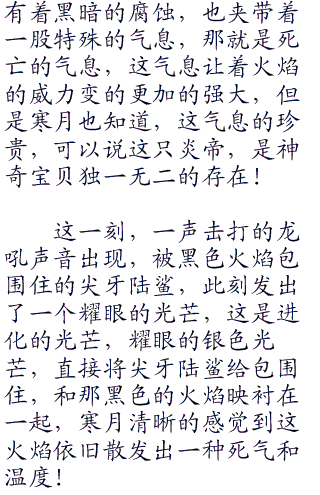 有着黑暗的腐蚀，也夹带着
一股特殊的气息，那就是死
亡的气息，这气息让着火焰
的威力变的更加的强大，但
是寒月也知道，这气息的珍
贵，可以说这只炎帝，是神
奇宝贝独一无二的存在！
这一刻，一声击打的龙
吼声音出现，被黑色火焰包
围住的尖牙陆鲨，此刻发出
了一个耀眼的光芒，这是进
化的光芒，耀眼的银色光
芒，直接将尖牙陆鲨给包围
住，和那黑色的火焰映衬在
一起，寒月清晰的感觉到这
火焰依旧散发出一种死气和
温度！